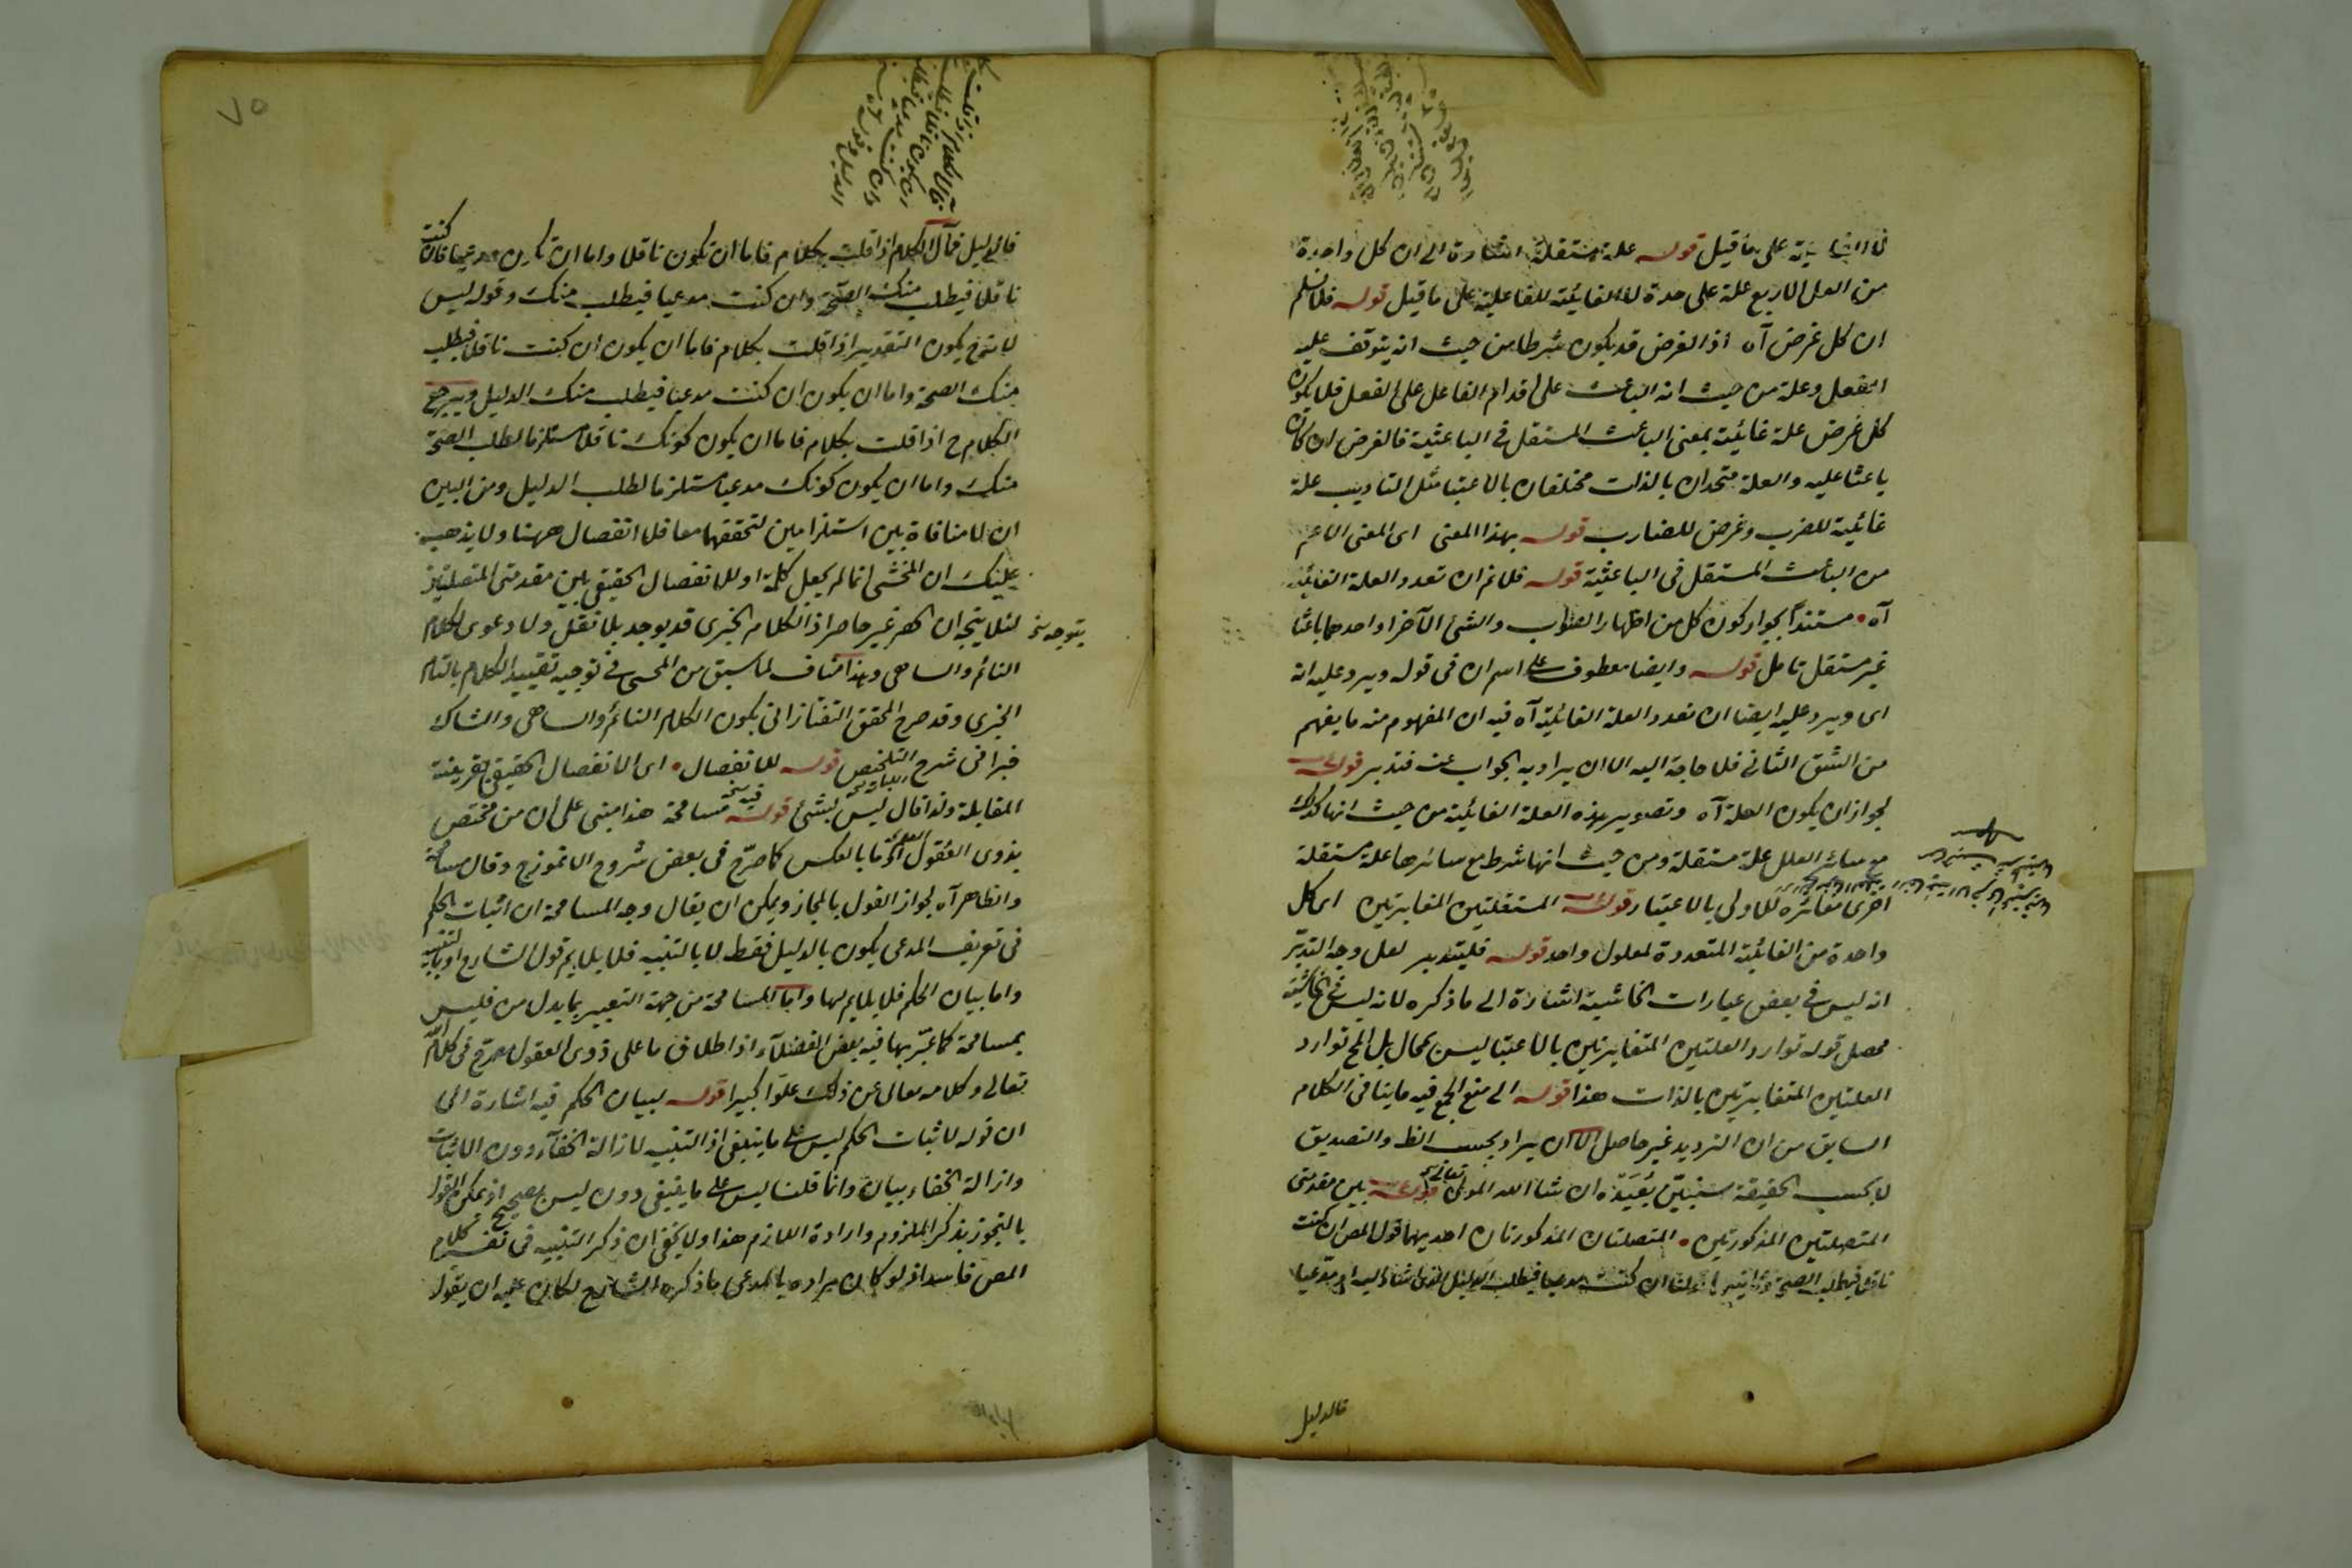 على ما قيل قوله علة مستقلة اشارة الى ان كل واحدة
من العلل الاربع علة على حدة لا الغائية للفاعلية على ما قيل قوله فلا نسلم
ان كل غرض آه اذ الغرض قد يكون شرطا من حيث انه يتوقف عليه
الفعل وعلة من حيث انه الباعث على اقدام الفاعل على الفعل فلا يكون
كل غرض علة غائية بمعنى الباعث المستقل في الباعثية فالغرض ان كان
باعثا عليه والعلة متحدان بالذات مختلفان بالاعتبا مثل التاديب علة
غائية للضرب وغرض للضارب قوله بهذا المعنى اى المعنى الاعم
من الباعث المستقل فى الباعثية قوله فلانم ان تعدد العلة الغائية
آه مستندا بجواز كون كل من اظهار الصواب والشئ الآخر او احدهما باعثا
غير مستقل تامل قوله وايضا معطوف على اسم ان فى قوله ويرد عليه انه
اى ويرد عليه ايضا ان تعدد العلة الغائية آه فيه ان المفهوم منه ما يفهم
من الشق الثانى فلا حاجة اليه الا ان يراد به الجواب عنه فتدبر قوله
لجواز ان يكون العلة آه وتصوير هذه العلة الغائية من حيث انها كذلك
مع سائر العلل علة مستقلة ومن حيث انها شرط مع سائرها علة مستقلة
اخرى مغائرة للاولى بالاعتبار قوله المستقلتين المتغايرتين اى كل
واحدة من الغائية المتعددة لمعلول واحد قوله فليتدبر لعل وجه التدبّر
انه ليس في بعض عبارات الحاشية اشارة الى ما ذكره لانه ليس في الحاشية
محصل قوله توارد العلتين المتغايرتين بالاعتبا ليس بمحال بل المح توارد
العلتين المتغايرتين بالذات هذا قوله الى منع الجمع فيه ما ينافى الكلام
السابق من ان الترديد غير حاصل الا ان يراد بحسب الظ والتصديق
لا بحسب الحقيقة سنبيّن بُعَيْدَه ان شا الله المولى تعالى قوله بين مقدمتى
المتصلتين المذكورتين المتصلتان المذكورتان احديهما قول المص ان كنت
ناقلا فيطلب الصحة وثانيتهما ان كنت مدعيا فيطلب الدليل
فالدليل
٧٥
فالدليل فمآل الكلام اذا قلت بكلام فاما ان تكون ناقلا واما ان تكون مدعيا فان كنت
ناقلا فيطلب منك الصحة وان كنت مدعيا فيطلب منك وقوله ليس
يكون التقدير اذا قلت بكلام فاما ان يكون ان كنت ناقلا فيطلب
منك الصحة واما ان يكون ان كنت مدعيا فيطلب منك الدليل ويرجع
الكلام ح اذا قلت بكلام فاما ان يكون كونك ناقلا مستلزما لطلب الصحة
منك واما ان يكون كونك مدعيا مستلزما لطلب الدليل ومن البين
ان لا منافاة بين استلزامين لتحققهما معا فلا انفصال ههنا ولا يذهب
عليك ان المحشى انما لم يجعل كلمة او للانفصال الحقيقى بين مقدمتى المتصلتين
لئلا يتجه ان الحصر غير حاصر اذ الكلام الخبرى قد يوجد بلا نقل ولا دعوى ككلام
يتوجه نخ
النائم والساهى وهذا مناف لما سبق من المحشى فى توجيه تقييد الكلام بالتام
الخبرى وقد صرح المحقق التفتازانى بكون الكلام النائم والساهى والشاك
خبرا فى شرح التلخيص قوله للانفصال اى الانفصال الحقيقى بقرينة
المقابلة ولذا قال ليس بشئ قوله فيه مسامحة هذا مبنى على ان من مختص
بذوى العقول وما بالعكس كما صرّح فى بعض شروح الانموزج وقال مسامحة
والظاهر آه لجواز القول بالمجاز ويمكن ان يقال وجه المسامحة ان اثبات الحكم
فى تعريف المدعى يكون بالدليل فقط لا بالتنبيه فلا يلايم قول الشارح او بالتنبيه
واما بيان الحكم فلا يلايم لها واما المسامحة من جهة التعبير بما يدل من فليس
بمسامحة كما عبّر بها فيه بعض الفضلآء اذ اطلاق ما على ذوى العقول مصرح فى كلام الله
تعالى وكلامه تعالى عن ذلك علوّا كبيرا قوله لبيان الحكم فيه اشارة الى
ان قوله لاثبات الحكم ليس على ما ينبغى اذ التنبيه لازالة الخفآء دون الاثبات
وازالة الخفاء بيان وانما قلنا ليس على ما ينبغى دون ليس بصحيح اذ يمكن القول
بالتجوز بذكر الملزوم وارادة اللازم هذا ولا يخفى ان ذكر التنبيه فى تفسير كلام
المص فاسد اذ لو كان مراده بالمدعى ما ذكره الشارح لكان عليه ان يقول